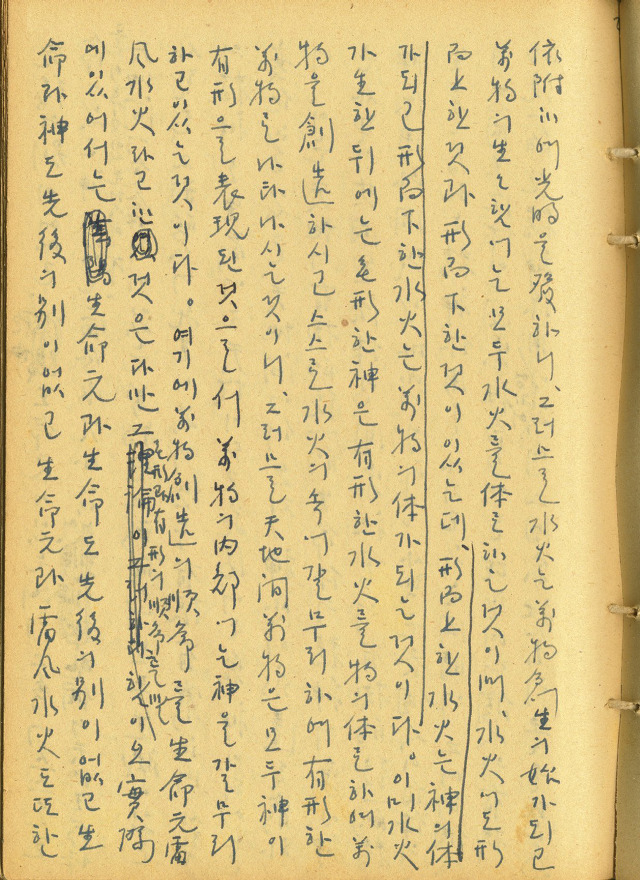 依附하여 光明을 發하니, 그러므로 水火는 萬物創生의 始가 되고
萬物의 生生에는 모두 水火를 体로 하는 것이며, 水火에도 形
而上한 것과 形而下한 것이 있는데, 形而上한 水火는 神의 体
가 되고 形而下한 水火는 萬物의 体가 되는 것이다. 이미 水火
가 生한 뒤에는 無形한 神은 有形한 水火를 物의 体로 하여 萬
物을 創造하시고 스스로 水火의 속에 갈무리하여 有形한
萬物로 나타나시는 것이니, 그러므로 天地間 萬物은 모두 神이
有形으로 表現된 것으로서 萬物의 內部에는 神을 갈무리
하고 있는 것이다. 여기에 萬物創造의 順序를 生命元 雷
風水火라고 한 것은 다만 그 無形과 有形의 順序를 이오 實際
에 있어서는 生命元과 生命도 先後의 別이 없고 生
命과 神도 先後의 別이 없고 生命元과 雷風水火도 또한